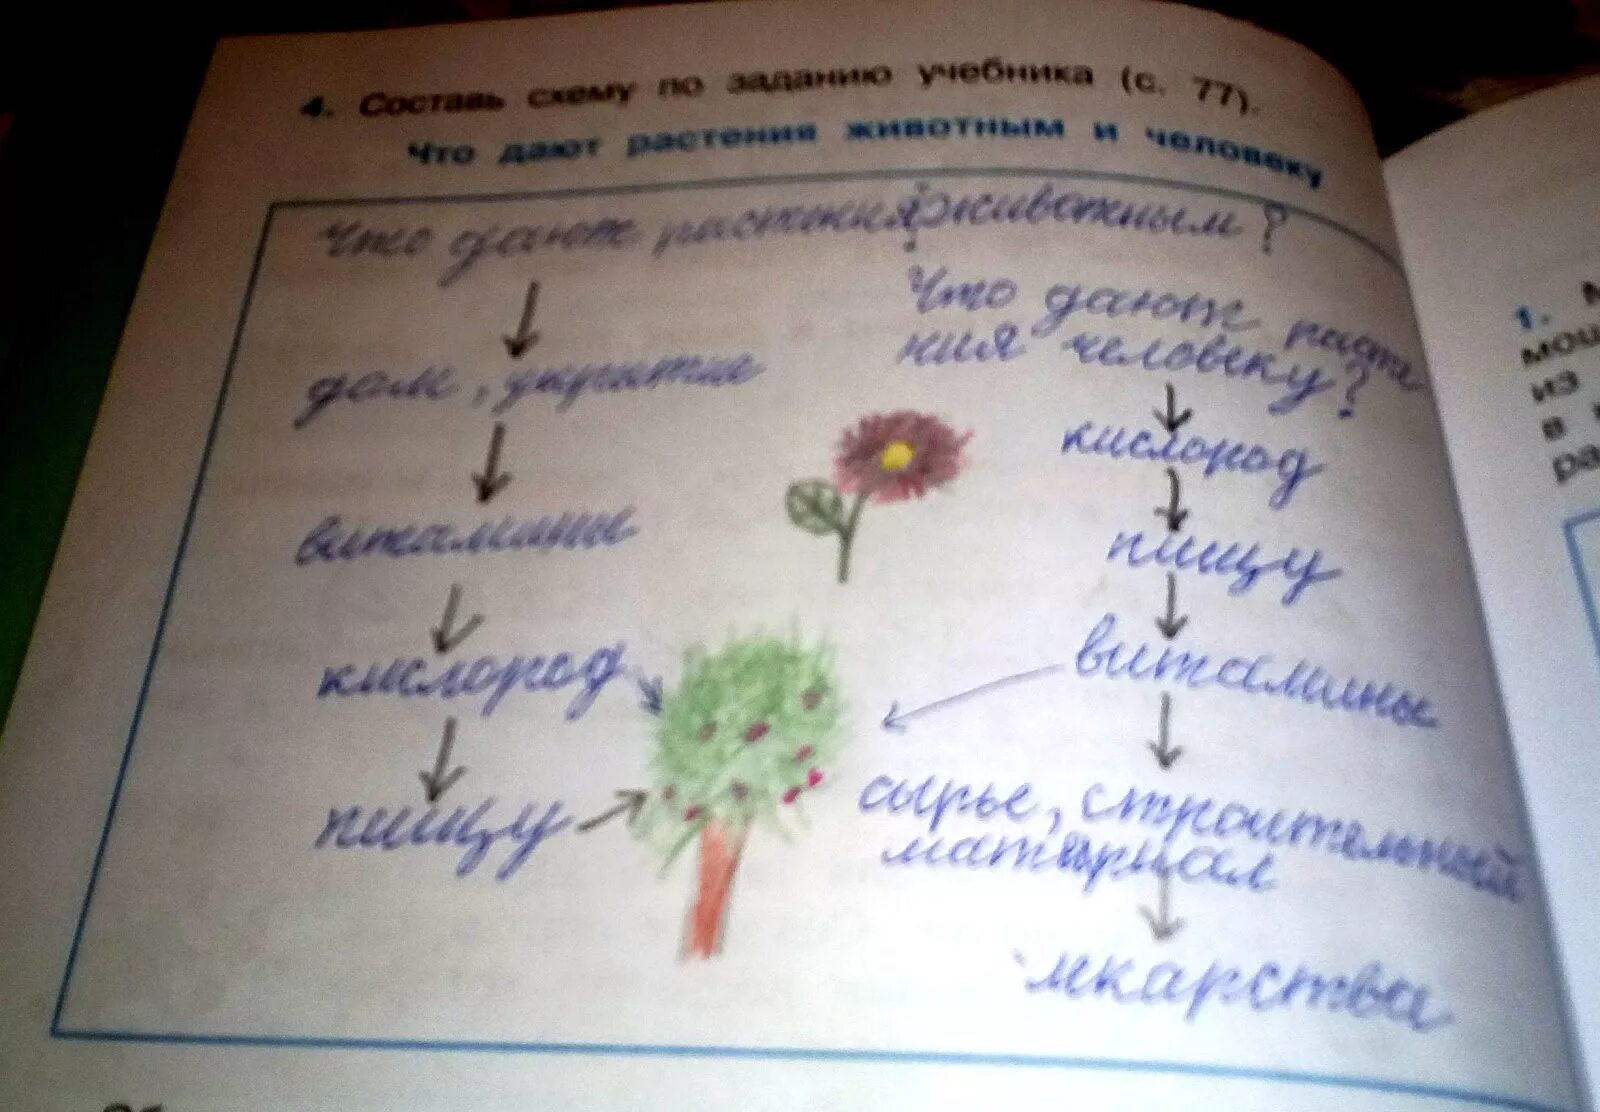 4. Составь схему по заданию учебника (с. 77).
Что дают растения животным и человеку
Что дают растения животным?
дом, укрытие
витамины
кислород
пищу
Что дают расте
ния человеку?
кислород
пищу
витамины
сырье, строительный
материал
лекарства
1. М
мош
из
в
ра